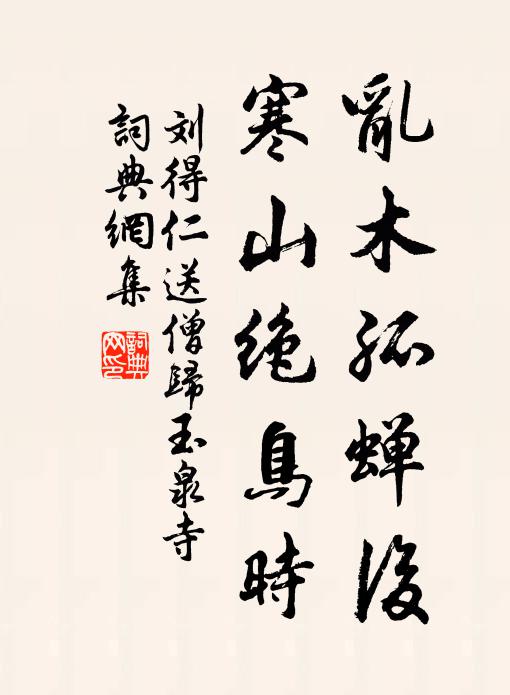 亂木孤蝉後
寒山绝鳥時
刘得仁送僧歸玉泉寺
詞典網集
詞典
网印